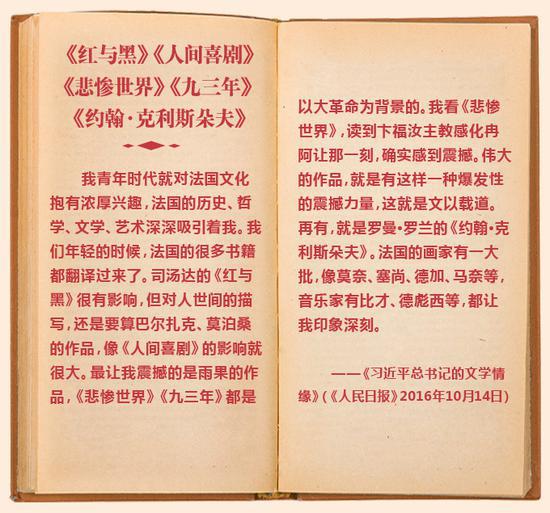 《红与黑》《人间喜剧》
《悲惨世界》《九三年》
《约翰·克利斯朵夫》
我青年时代就对法国文化
抱有浓厚兴趣，法国的历史、哲
学、文学、艺术深深吸引着我。我
们年轻的时候，法国的很多书籍
都翻译过来了。司汤达的《红与
黑》很有影响，但对人世间的描
写，还是要算巴尔扎克、莫泊桑
的作品，像《人间喜剧》的影响就
很大。最让我震撼的是雨果的作
品，《悲惨世界》《九三年》都是
以大革命为背景的。我看《悲惨
世界》，读到卞福汝主教感化冉
阿让那一刻，确实感到震撼。伟大
的作品，就是有这样一种爆发性
的震撼力量，这就是文以载道。
再有，就是罗曼·罗兰的《约翰·克
利斯朵夫》。法国的画家有一大
批，像莫奈、塞尚、德加、马奈等，
音乐家有比才、德彪西等，都让
我印象深刻。
——《习近平总书记的文学情
缘》(《人民日报》2016年10月14日)